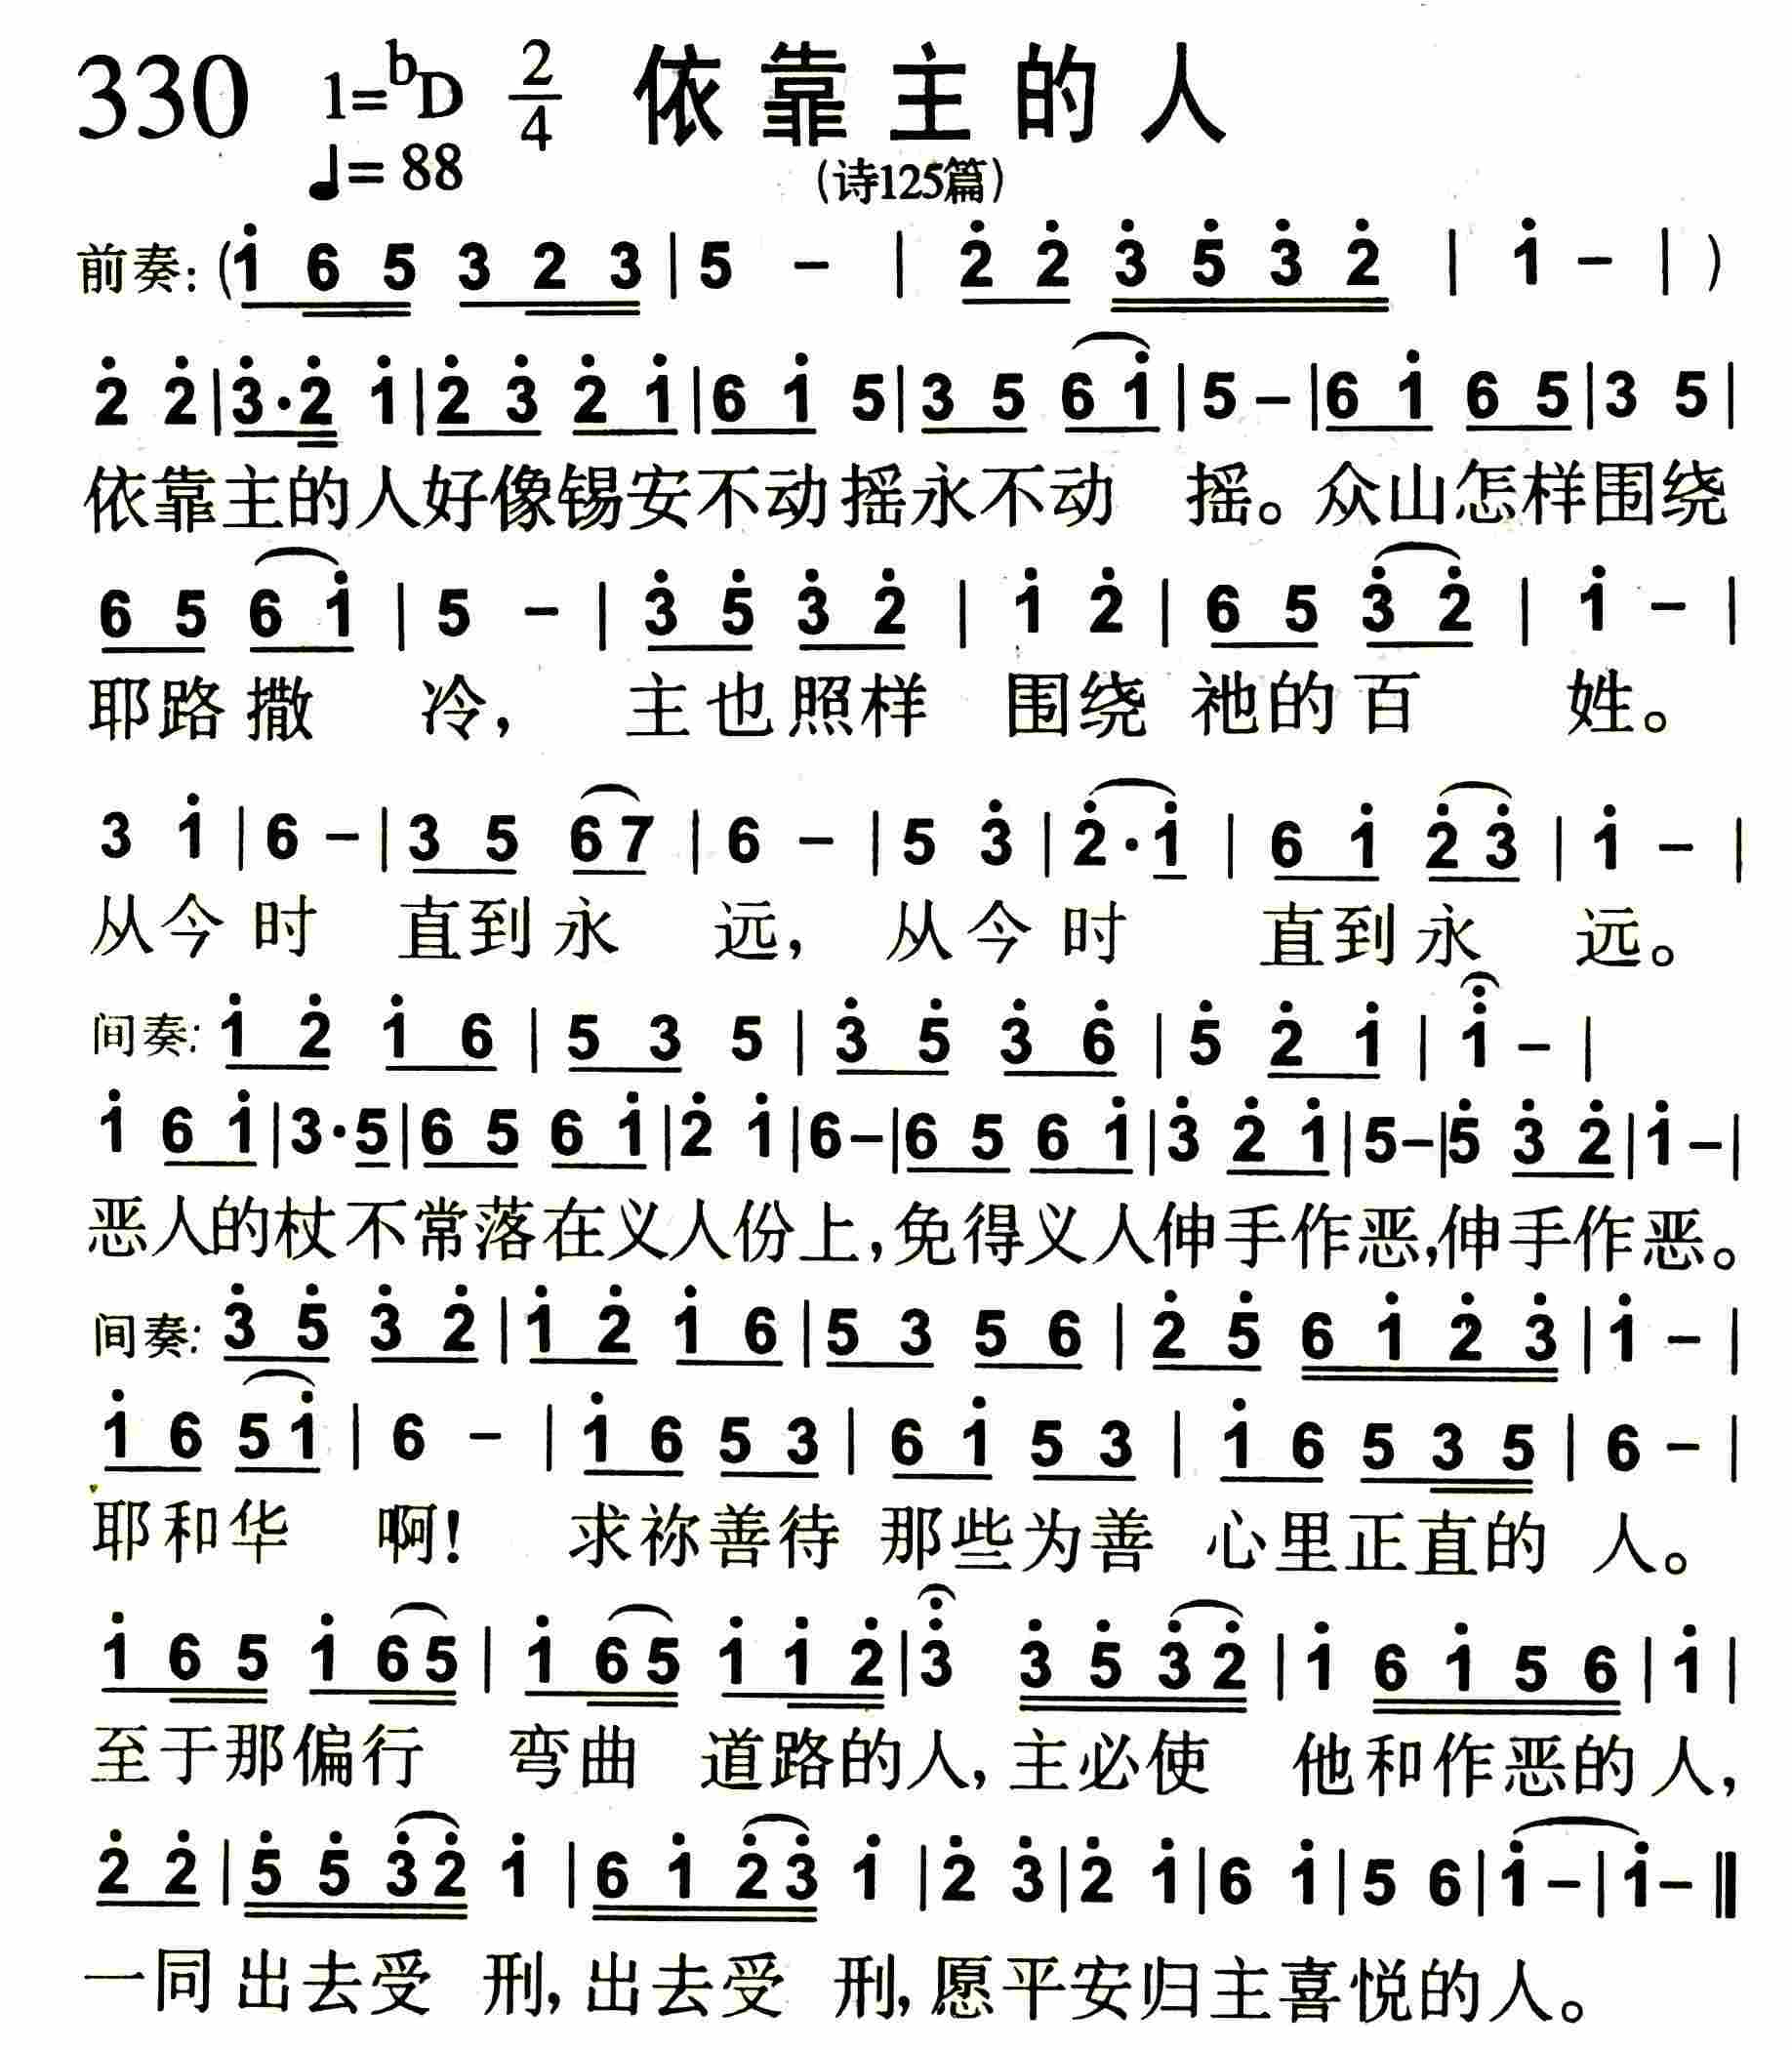 330 1=ᵇD 2/4 依靠主的人
♩=88 (诗125篇)
前奏: (1̇ 6 5 3 2 3 | 5 - | 2̇ 2̇ 3̇ 5̇ 3̇ 2̇ | 1̇ - | )
2̇ 2̇ | 3̇·2̇ 1̇ | 2̇ 3̇ 2̇ 1̇ | 6 1̇ 5 | 3 5 6 1̇ | 5 - | 6 1̇ 6 5 | 3 5 |
依靠主的人好像锡安不动摇永不动 摇。众山怎样围绕
6 5 6 1̇ | 5 - | 3̇ 5̇ 3̇ 2̇ | 1̇ 2̇ | 6 5 3̇ 2̇ | 1̇ - |
耶路撒 冷, 主也照样 围绕 祂的百 姓。
3 1̇ | 6 - | 3 5 6 7 | 6 - | 5 3̇ | 2̇·1̇ | 6 1̇ 2̇ 3̇ | 1̇ - |
从今时 直到永 远, 从今时 直到永 远。
间奏: 1̇ 2̇ 1̇ 6 | 5 3 5 | 3̇ 5̇ 3̇ 6̇ | 5̇ 2̇ 1̇ | 1̇ - |
1̇ 6 1̇ | 3·5 | 6 5 6 1̇ | 2̇ 1̇ | 6 - | 6 5 6 1̇ | 3̇ 2̇ 1̇ | 5 - | 5̇ 3̇ 2̇ | 1̇ - |
恶人的杖不常落在义人份上,免得义人伸手作恶,伸手作恶。
间奏: 3̇ 5̇ 3̇ 2̇ | 1̇ 2̇ 1̇ 6 | 5 3 5 6 | 2̇ 5̇ 6 1̇ 2̇ 3̇ | 1̇ - |
1̇ 6 5 1̇ | 6 - | 1̇ 6 5 3 | 6 1̇ 5 3 | 1̇ 6 5 3 5 | 6 - |
耶和华 啊! 求祢善待 那些为善 心里正直的 人。
1̇ 6 5 1̇ 6 5 | 1̇ 6 5 1̇ 1̇ 2̇ | 3̇ 3̇ 5̇ 3̇ 2̇ | 1̇ 6 1̇ 5 6 | 1̇ |
至于那偏行 弯曲 道路的人,主必使 他和作恶的人,
2̇ 2̇ | 5̇ 5̇ 3̇ 2̇ 1̇ | 6 1̇ 2̇ 3̇ 1̇ | 2̇ 3̇ | 2̇ 1̇ | 6 1̇ | 5 6 | 1̇ - | 1̇ - ‖
一同出去受 刑,出去受 刑,愿平安归主喜悦的人。